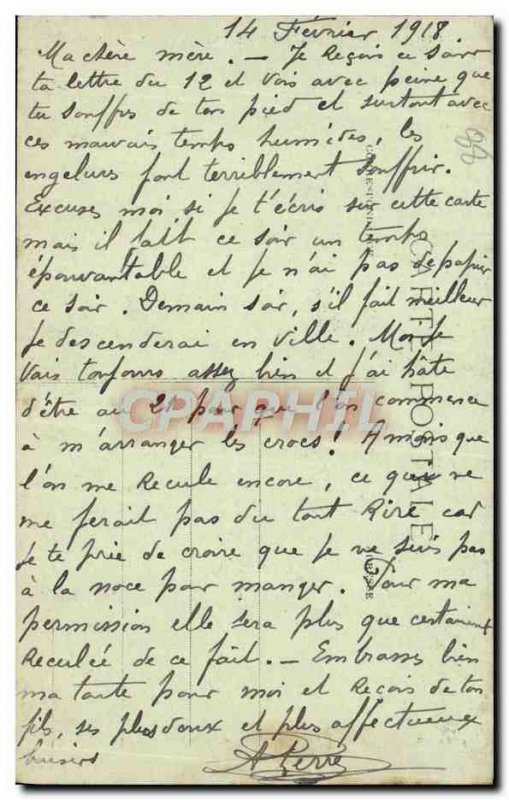 14 Février 1918.
Ma chère mère. — Je Reçois ce soir
ta lettre du 12 et vois avec peine que
tu souffres de ton pied et surtout avec
ces mauvais temps humides, les
engelures font terriblement souffrir.
Excuses moi si je t'écris sur cette carte
mais il fait ce soir un temps
épouvantable et je n'ai pas de papier
ce soir. Demain soir, s'il fait meilleur
je descenderai en ville. Moi je
vais toujours assez bien et j'ai hâte
d'être au 21 pour que l'on commence
à m'arranger les crocs! A moins que
l'on me Recule encore, ce qui ne
me ferait pas du tout Rire car
je te prie de croire que je ne suis pas
à la noce pour manger. Pour ma
permission elle sera plus que certainemt
Reculée de ce fait. — Embrasse bien
ma tante pour moi et Reçois de ton
fils, ses plus doux et plus affectueux
baisers
CARTE POSTALE
CPAPHIL